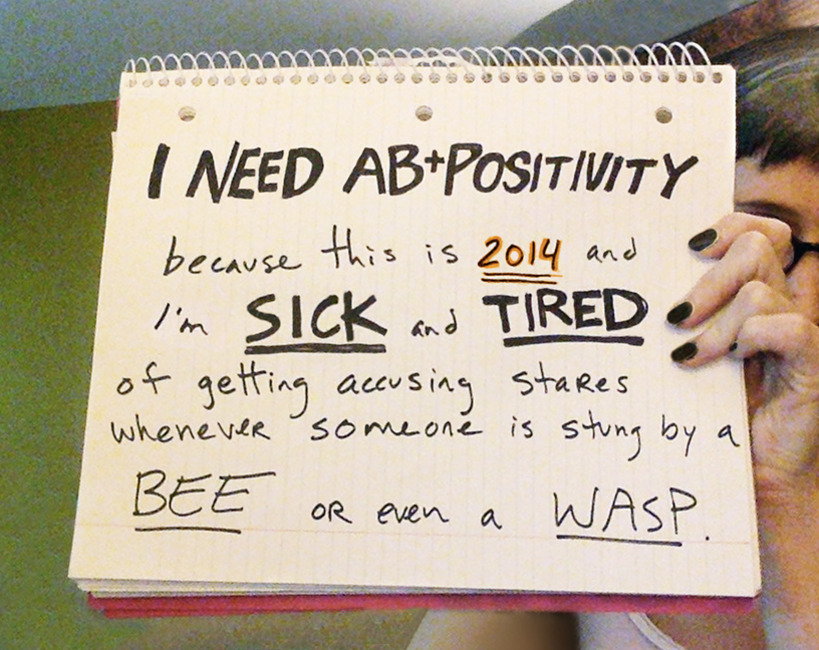 I NEED AB+POSITIVITY
because this is 2014 and
I'm SICK and TIRED
of getting accusing stares
whenever someone is stung by a
BEE or even a WASP.